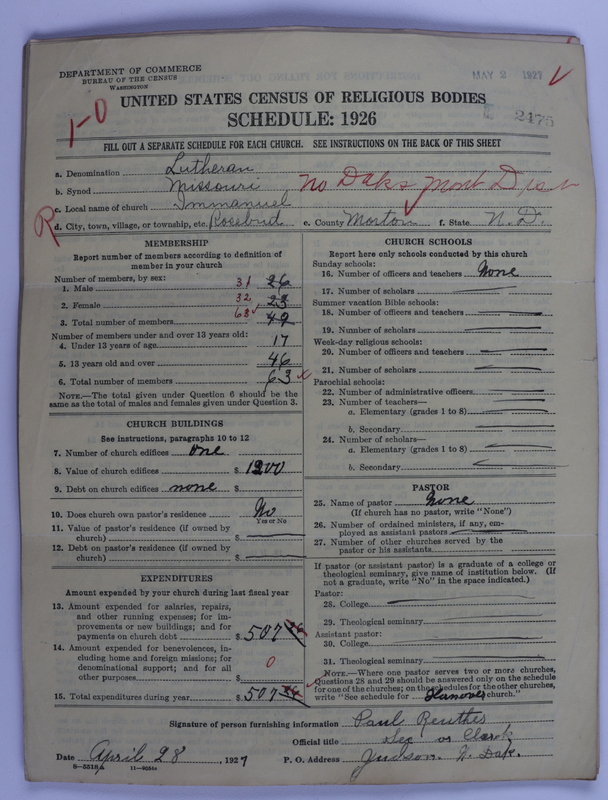 DEPARTMENT OF COMMERCE
BUREAU OF THE CENSUS
WASHINGTON
MAY 2 1927
1-0
UNITED STATES CENSUS OF RELIGIOUS BODIES
SCHEDULE: 1926
2475
FILL OUT A SEPARATE SCHEDULE FOR EACH CHURCH. SEE INSTRUCTIONS ON THE BACK OF THIS SHEET
a. Denomination Lutheran
b. Synod Missouri No Dak & Mont Dist
c. Local name of church Immanuel
R
d. City, town, village, or township, etc. Rosebud e. County Morton f. State N. D.
MEMBERSHIP
Report number of members according to definition of member in your church
Number of members, by sex:
1. Male 31 26
2. Female 32 23
3. Total number of members 63 49
Number of members under and over 13 years old:
4. Under 13 years of age 17
5. 13 years old and over 46
6. Total number of members 63 x
NOTE.—The total given under Question 6 should be
same as the total of males and females given under Question 3.
CHURCH BUILDINGS
See instructions, paragraphs 10 to 12
7. Number of church edifices one
8. Value of church edifices $ 1200
9. Debt on church edifices none $
10. Does church own pastor's residence No
Yes or No
11. Value of pastor's residence (if owned by
church) $
12. Debt on pastor's residence (if owned by
church) $
EXPENDITURES
Amount expended by your church during last fiscal year
13. Amount expended for salaries, repairs,
and other running expenses; for im-
provements or new buildings; and for
payments on church debt $ 507
14. Amount expended for benevolences, in-
cluding home and foreign missions; for
denominational support; and for all
other purposes $ 0
15. Total expenditures during year $ 507
CHURCH SCHOOLS
Report here only schools conducted by this church
Sunday schools:
16. Number of officers and teachers None
17. Number of scholars
Summer vacation Bible schools:
18. Number of officers and teachers
19. Number of scholars
Week-day religious schools:
20. Number of officers and teachers
21. Number of scholars
Parochial schools:
22. Number of administrative officers
23. Number of teachers—
a. Elementary (grades 1 to 8)
b. Secondary
24. Number of scholars—
a. Elementary (grades 1 to 8)
b. Secondary
PASTOR
25. Name of pastor None
(If church has no pastor, write "None")
26. Number of ordained ministers, if any, em-
ployed as assistant pastors
27. Number of other churches served by the
pastor or his assistants
If pastor (or assistant pastor) is a graduate of a college or
theological seminary, give name of institution below. (If
not a graduate, write "No" in the space indicated.)
Pastor:
28. College
29. Theological seminary
Assistant pastor:
30. College
31. Theological seminary
NOTE.—Where one pastor serves two or more churches,
Questions 28 and 29 should be answered only on the schedule
for one of the churches; on the schedules for the other churches,
write "See schedule for Hanover church."
Signature of person furnishing information Paul Reuther
Official title Sec or Clerk
Date April 28, 1927 P. O. Address Judson. N. Dak.
8-5518A 11-9054